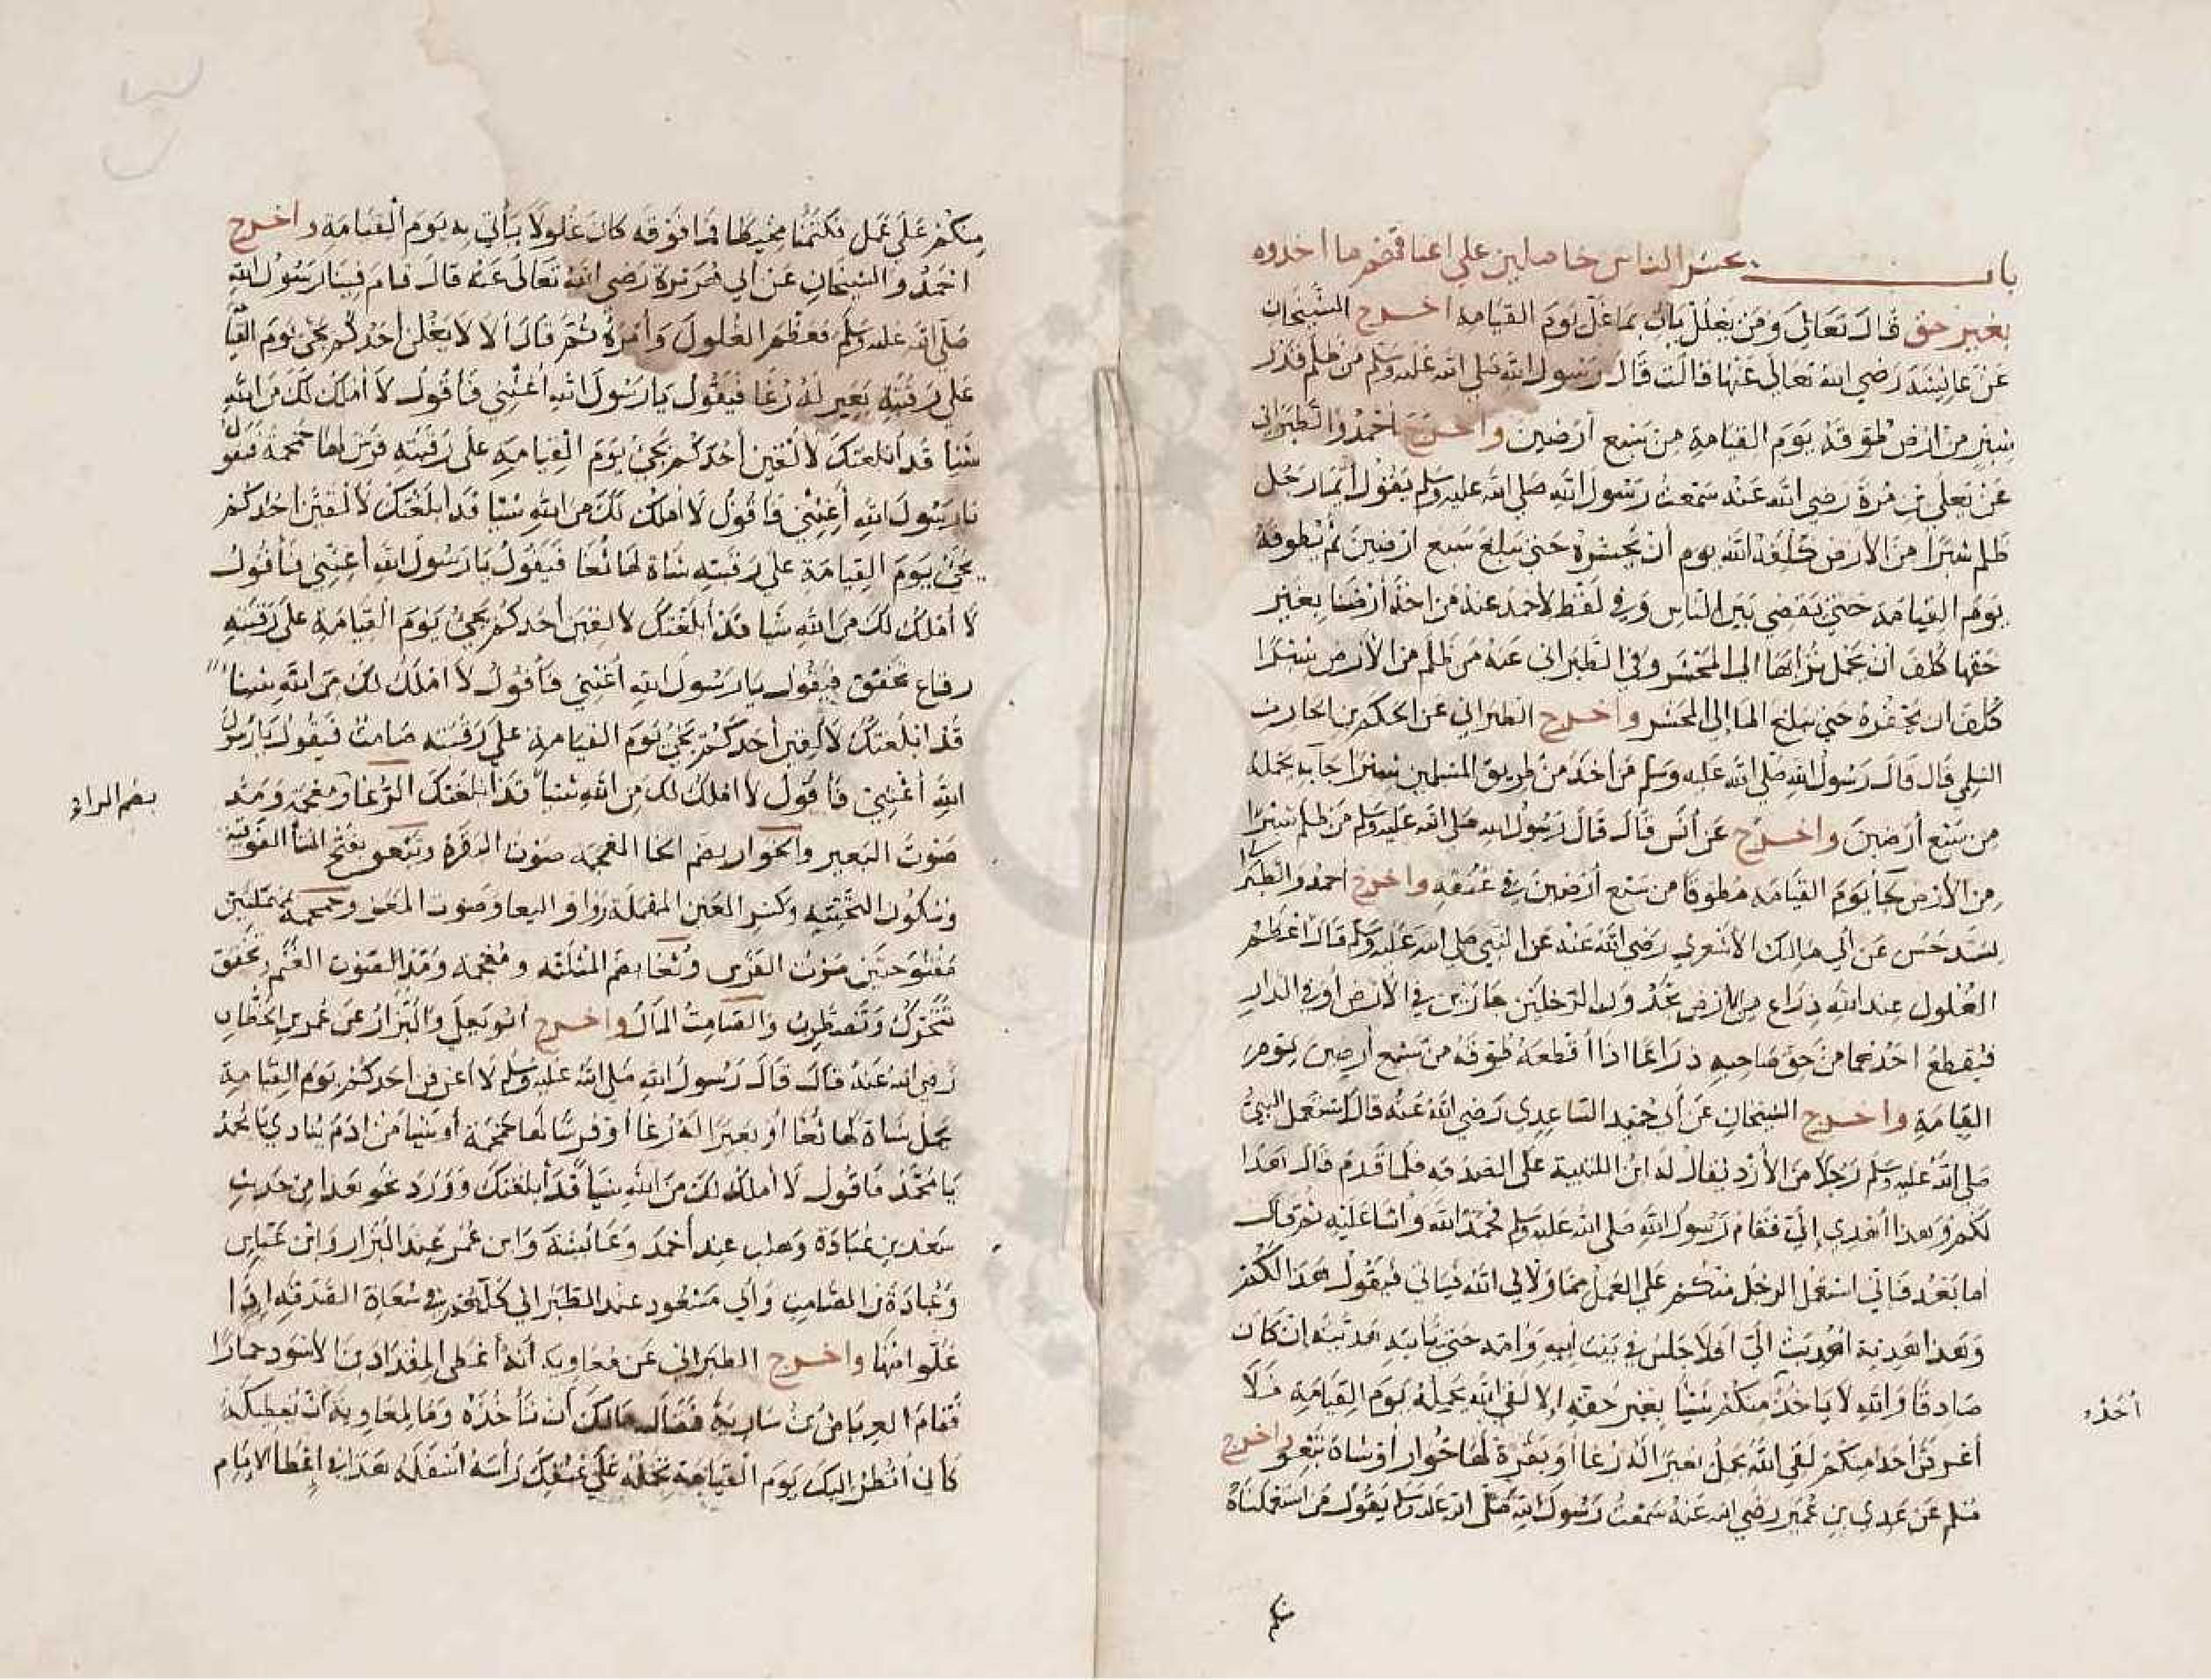 باب يحشر الناس حاملين على اعناقهم ما اخذوه
بغير حق قال تعالى ومن يغلل يات بما غل يوم القيامة اخرج الشيخان
عن عايشة رضي الله تعالى عنها قالت قال رسول الله صلى الله عليه وسلم من ظلم قدر
شبر من ارض طوقه يوم القيامة من سبع أرضين واخرج أحمد والطبراني
عن يعلى بن مرة رضي الله عنه سمعت رسول الله صلى الله عليه وسلم يقول أيما رجل
ظلم شبرا من الأرض كلفه الله يوم أن يحشره حتى يبلغ سبع أرضين ثم يطوقه
يوم القيامة حتى يقضي بين الناس وفي لفظ لأحمد عنه من اخذ أرضا بغير
حقها كلف ان يحمل ترابها الى المحشر وفي الطبراني عنه من ظلم من الأرض شبرا
كلف ان يحفره حتى يبلغ الما إلى المحشر واخرج الطبراني عن الحكم بن الحارث
السلمي قال قال رسول الله صلى الله عليه وسلم من أخذ من طريق المسلمين شبرا جا به يحمله
من سبع أرضين واخرج عن أنس قال قال رسول الله صلى الله عليه وسلم من ظلم شبرا
من الأرض جا يوم القيامة مطوقا من سبع أرضين في عنقه واخرج أحمد والطبرا
بسند حسن عن أبي مالك الأشعري رضي الله عنه عن النبي صلى الله عليه وسلم قال أعظم
الغلول عند الله ذراع من الأرض تجدون الرجلين جارين في الأرض أو في الدار
فيقطع احدهما من حق صاحبه ذراعا اذا أقطعه طوقه من سبع أرضين يوم
القيامة واخرج الشيخان عن أبي حميد الساعدي رضي الله عنه قال استعمل النبي
صلى الله عليه وسلم رجلا من الأزد يقال له ابن اللتبية على الصدقة فلما قدم قال هذا
لكم وهذا أهدي إلي فقام رسول الله صلى الله عليه وسلم فحمد الله واثنا عليه ثم قال
أما بعد فاني استعمل الرجل منكم على العمل مما ولاني الله فياتي فيقول هذا لكم
وهذا هدية أهديت الي افلا جلس في بيت ابيه وامه حتى تاتيه هديته ان كان
صادقا والله لا ياخذ منكم شيئا بغير حقه إلا لقي الله يحمله يوم القيامة فلا
أخذه
أعرفن أحدا منكم لقي الله يحمل بعيرا له رغا أو بقرة لها خوار أو شاة تيعر واخرج
مسلم عن عدي بن عمير رضي الله عنه سمعت رسول الله صلى الله عليه وسلم يقول من استعملناه
منكم
منكم على عمل فكتمنا مخيطا فما فوقه كان غلولا يأتي به يوم القيامة واخرج
احمد والشيخان عن أبي هريرة رضي الله تعالى عنه قال قام فينا رسول الله
صلى الله عليه وسلم فعظم الغلول وأمره ثم قال ألا لا يغلن أحدكم يجي يوم القيا
على رقبته بعير له رغا فيقول يا رسول الله أغثني فأقول لا أملك لك من الله
شيا قد أبلغتك لا ألفين أحدكم يجي يوم القيامة على رقبته فرس لها حمحمة فيقول
يا رسول الله أغثني فاقول لا أملك لك من الله شيا قد أبلغتك لا ألفين احدكم
يجي يوم القيامة على رقبته شاة لها ثغا فيقول يا رسول الله أغثني فأقول
لا أملك لك من الله شيا قد أبلغتك لا الفين أحدكم يجي يوم القيامة على رقبته
رقاع تخفق فيقول يا رسول الله أغثني فأقول لا املك لك من الله شيا
قد ابلغتك لا الفين أحدكم يجي يوم القيامة على رقبته صامت فيقول يا رسول
الله أغثني فأقول لا املك لك من الله شيا قد أبلغتك الرغا ومعجمة ومد
بضم الراي
صوت البعير والخوار بضم الخا المعجمة صوت البقرة وتيعر بفتح المثناة الفوقية
وسكون التحتية وكسر العين المهملة ورا واليعار صوت المعز وحمحمة بمهملتين
مفتوحتين صوت الفرس وثغا بضم المثلثة ومعجمة ومد الصوت الغنم تخفق
تتحرك وتضطرب والصامت المال واخرج ابو يعلى والبزار عن عمر بن الخطاب
رضي الله عنه قال قال رسول الله صلى الله عليه وسلم لا اعرفن احدكم يوم القيامة
يحمل شاة لها ثغا أو بعيرا له رغا أو فرسا لها حمحمة أو شيا من ادم ينادي يا محمد
يا محمد فاقول لا املك لك من الله شيا قد أبلغتك وورد نحو هذا من حديث
سعد بن عبادة وهلب عند أحمد وعائشة وابن عمر عند البزار وابن عباس
وعبادة بن الصامت وأبي مسعود عند الطبراني كلهم في سعاة الصدقة إذا
غلوا منها واخرج الطبراني عن معاوية أنه أعطى المقداد بن الأسود حمارا
فقام العرباض بن سارية فقال مالك أن تأخذه وما لمعاوية أن يعطيكه
كأني انظر اليك يوم القيامة تحمله على عنقك رأسه أسفله هذا في إعطا الامام